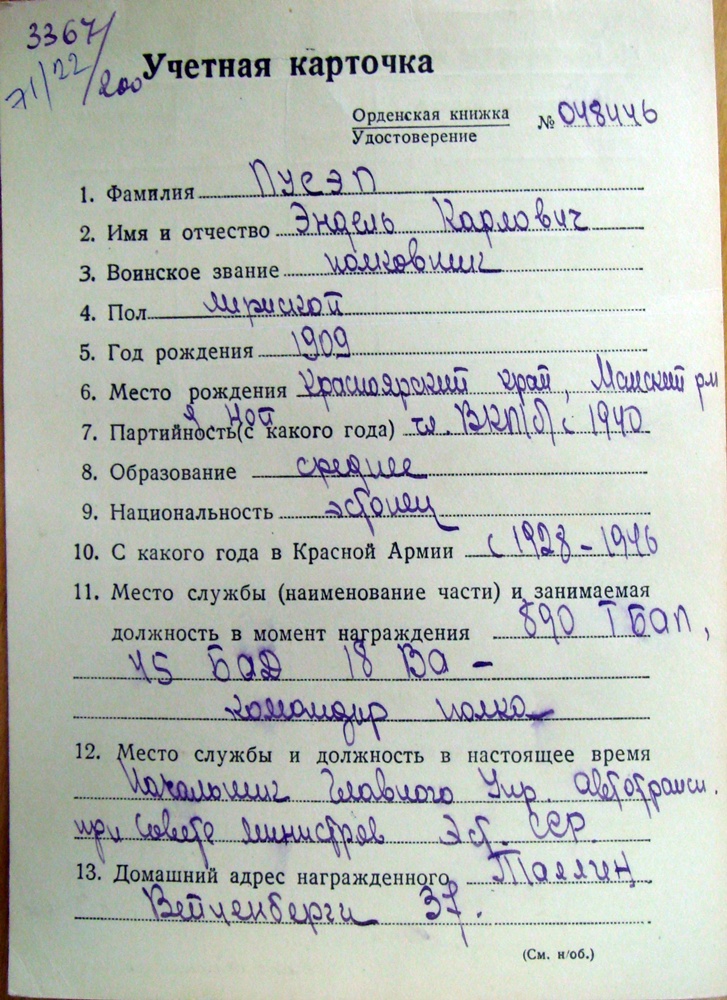 3367/
71/22/200
Учетная карточка
Орденская книжка
Удостоверение
№ 048446
1. Фамилия Пусэп
2. Имя и отчество Эндель Карлович
3. Воинское звание полковник
4. Пол мужской
5. Год рождения 1909
6. Место рождения Красноярский край, Манский р-н
7. Партийность (с какого года) чл. ВКП(б) с 1940
8. Образование среднее
9. Национальность эстонец
10. С какого года в Красной Армии с 1928 - 1946
11. Место службы (наименование части) и занимаемая
должность в момент награждения 890 ТБАП,
45 БАД 18 ВА -
командир полка
12. Место службы и должность в настоящее время
Начальник Главного Упр. автотрансп.
при Совете министров Эст. ССР.
13. Домашний адрес награжденного Таллин,
Вейценберги 37.
(См. н/об.)